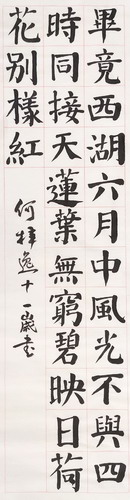 畢竟西湖六月中風光不與四
時同接天蓮葉無窮碧映日荷
花别樣紅
何梓逸十一歲書